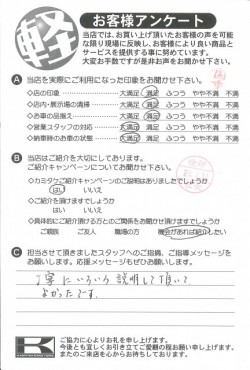 軽
お客様アンケート
当店では、お買い上げ頂いたお客様の声を可能
な限り現場に反映し、お客様により良い商品と
サービスを提供する事に努めています。
大変お手数ですが是非お声をお聞かせ下さい。
A 当店を実際にご利用になった印象をお聞かせ下さい。
◇店の印象 大満足 満足 ふつう やや不満 不満
◇店内・展示場の清掃 大満足 満足 ふつう やや不満 不満
◇お車の品揃え 大満足 満足 ふつう やや不満 不満
◇営業スタッフの対応 大満足 満足 ふつう やや不満 不満
◇納車時のお車の状態 大満足 満足 ふつう やや不満 不満
B 当店はご紹介を大切にしております。
ご紹介キャンペーンについてお聞かせ下さい。
◇カミタケご紹介キャンペーンのご説明はありましたでしょうか
はい いいえ
◇ご紹介を頂けますでしょうか
はい いいえ
◇具体的にご紹介頂ける方とのご関係をお聞かせ頂けますでしょうか
ご親族 ご友人 職場の方 機会があれば紹介したい
C 担当させて頂きましたスタッフへのご指摘、ご指導メッセージを
お願いします。応援メッセージもぜひお願いします。
丁寧にいろいろ説明して頂いて
よかったです。
K
ご協力に心よりお礼を申し上げます。
今後とも宜しくお引き立てご愛顧の程お願い申し上げます。
またのご来店を心からお待ちしております。